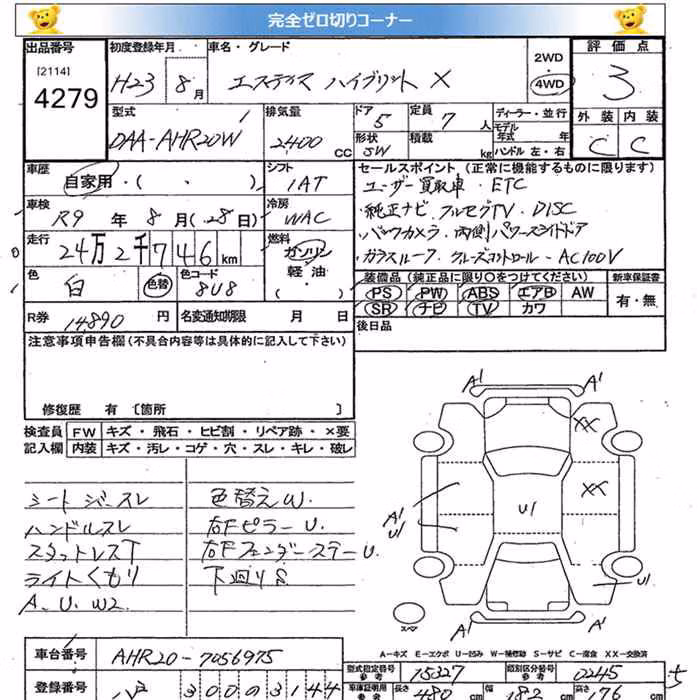 完全ゼロ切りコーナー
出品番号 初度登録年月 車名・グレード 2WD 評価点
[2114] 4279 H23 8月 エスティマ ハイブリット X 4WD 3
型式 排気量 ドア 5 定員 7人 ディーラー・並行 外装 内装
DAA-AHR20W 2400CC 形状 SW 積載 kg モデル年式 年 C C
ハンドル 左・右
車歴 シフト セールスポイント (正常に機能するものに限ります)
自家用・( ・ ) IAT ユーザー買取車・ETC
車検 冷房 ・純正ナビ フルセグTV・DISC
R9年8月(28日) WAC ・バックカメラ・両側パワースライドドア
走行 燃料 ・ガラスルーフ・クルーズコントロール・AC100V
24万2千746km ガソリン
色 色コード 軽・油 装備品 (純正品に限り〇をつけてください) 新車保証書
白 色替 8U8 ( ) PS PW ABS エアB AW 有・無
SR ナビ TV カワ
R券 14890円 名変通知期限 月 日 後日品
注意事項申告欄(不具合内容等は具体的に記入して下さい)
修復歴 有 〔箇所 〕
検査員 FW キズ・飛石・ヒビ割・リペア跡・×要
記入欄 内装 キズ・汚レ・コゲ・穴・スレ・キレ・破レ
A1 A1
XX
XX
U1
A1
U1
U1
A1 A1
スペア
シートシワースレ 色替えW.
ハンドルスレ 右Fピラー U.
スタットレスT 右Fフェンダーステー U
ライトくもり 下廻りS
A. U. W2
A-キズ E-エクボ U-凹み W-補修跡 S-サビ C-腐食 XX-交換済
車台番号 AHR20-7056975 型式指定番号 参考 15327 類別区分番号 参考 0245
登録番号 300 3144 車庫証明用 参考 長さ 480cm 幅 182cm 高さ 176cm